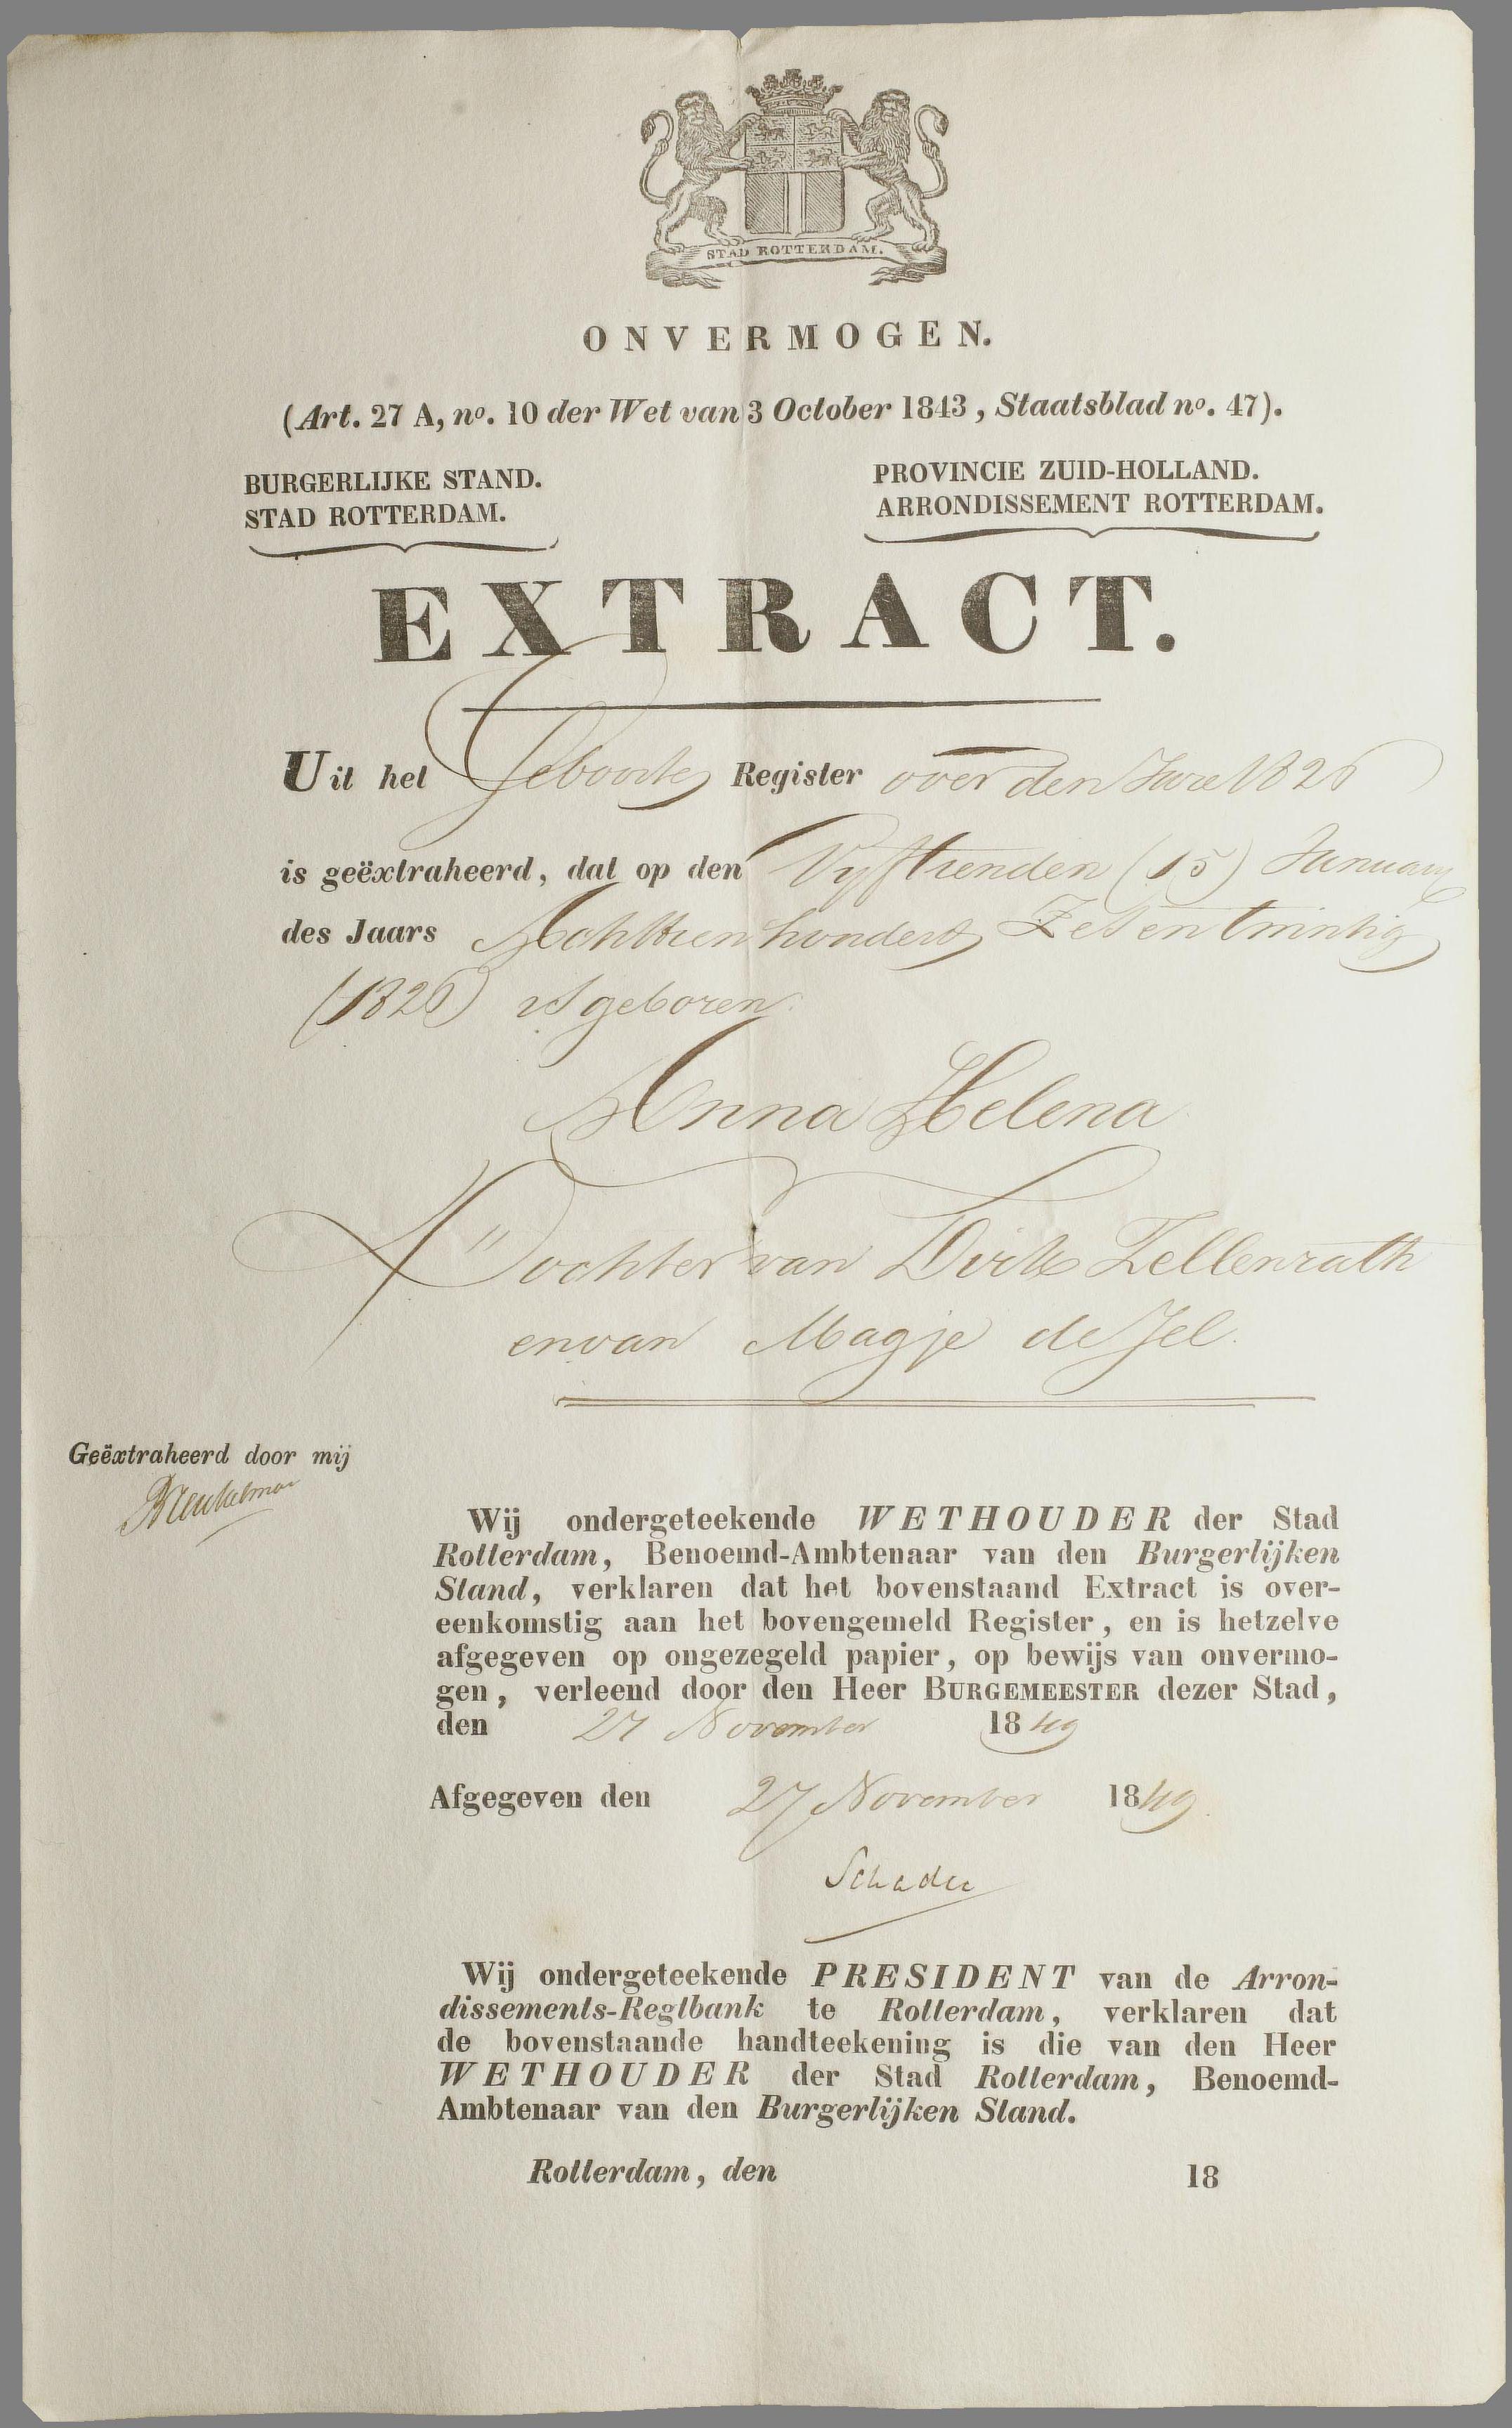 STAD ROTTERDAM.
ONVERMOGEN.
(Art. 27 A, no. 10 der Wet van 3 October 1843, Staatsblad no. 47).
BURGERLIJKE STAND.
STAD ROTTERDAM.
PROVINCIE ZUID-HOLLAND.
ARRONDISSEMENT ROTTERDAM.
EXTRACT.
Uit het Geboorte Register over den Jare 1826
is geëxtraheerd, dat op den Vyftienden (15) January
des Jaars Achttien honderd Zes en twintig
(1826) is geboren
Anna Helena
Dochter van Dirk Zellenrath
en van Magje de Jel.
Geëxtraheerd door mij
Wij ondergeteekende WETHOUDER der Stad
Rotterdam, Benoemd-Ambtenaar van den Burgerlijken
Stand, verklaren dat het bovenstaand Extract is over-
eenkomstig aan het bovengemeld Register, en is hetzelve
afgegeven op ongezegeld papier, op bewijs van onvermo-
gen, verleend door den Heer BURGEMEESTER dezer Stad,
den 27 November 1849
Afgegeven den 27 November 1849.
Schadee
Wij ondergeteekende PRESIDENT van de Arron-
dissements-Regtbank te Rotterdam, verklaren dat
de bovenstaande handteekening is die van den Heer
WETHOUDER der Stad Rotterdam, Benoemd-
Ambtenaar van den Burgerlijken Stand.
Rotterdam, den 18